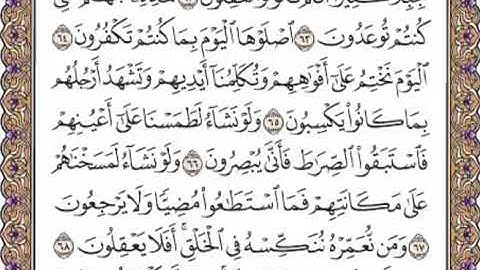 كُنتُمْ تُوعَدُونَ ٦٣ ٱصْلَوْهَا ٱلْيَوْمَ بِمَا كُنتُمْ تَكْفُرُونَ ٦٤
ٱلْيَوْمَ نَخْتِمُ عَلَىٰٓ أَفْوَٰهِهِمْ وَتُكَلِّمُنَآ أَيْدِيهِمْ وَتَشْهَدُ أَرْجُلُهُم
بِمَا كَانُوا۟ يَكْسِبُونَ ٦٥ وَلَوْ نَشَآءُ لَطَمَسْنَا عَلَىٰٓ أَعْيُنِهِمْ
فَٱسْتَبَقُوا۟ ٱلصِّرَٰطَ فَأَنَّىٰ يُبْصِرُونَ ٦٦ وَلَوْ نَشَآءُ لَمَسَخْنَٰهُمْ
عَلَىٰ مَكَانَتِهِمْ فَمَا ٱسْتَطَٰعُوا۟ مُضِيًّا وَلَا يَرْجِعُونَ
٦٧ وَمَن نُّعَمِّرْهُ نُنَكِّسْهُ فِى ٱلْخَلْقِ ۖ أَفَلَا يَعْقِلُونَ ٦٨